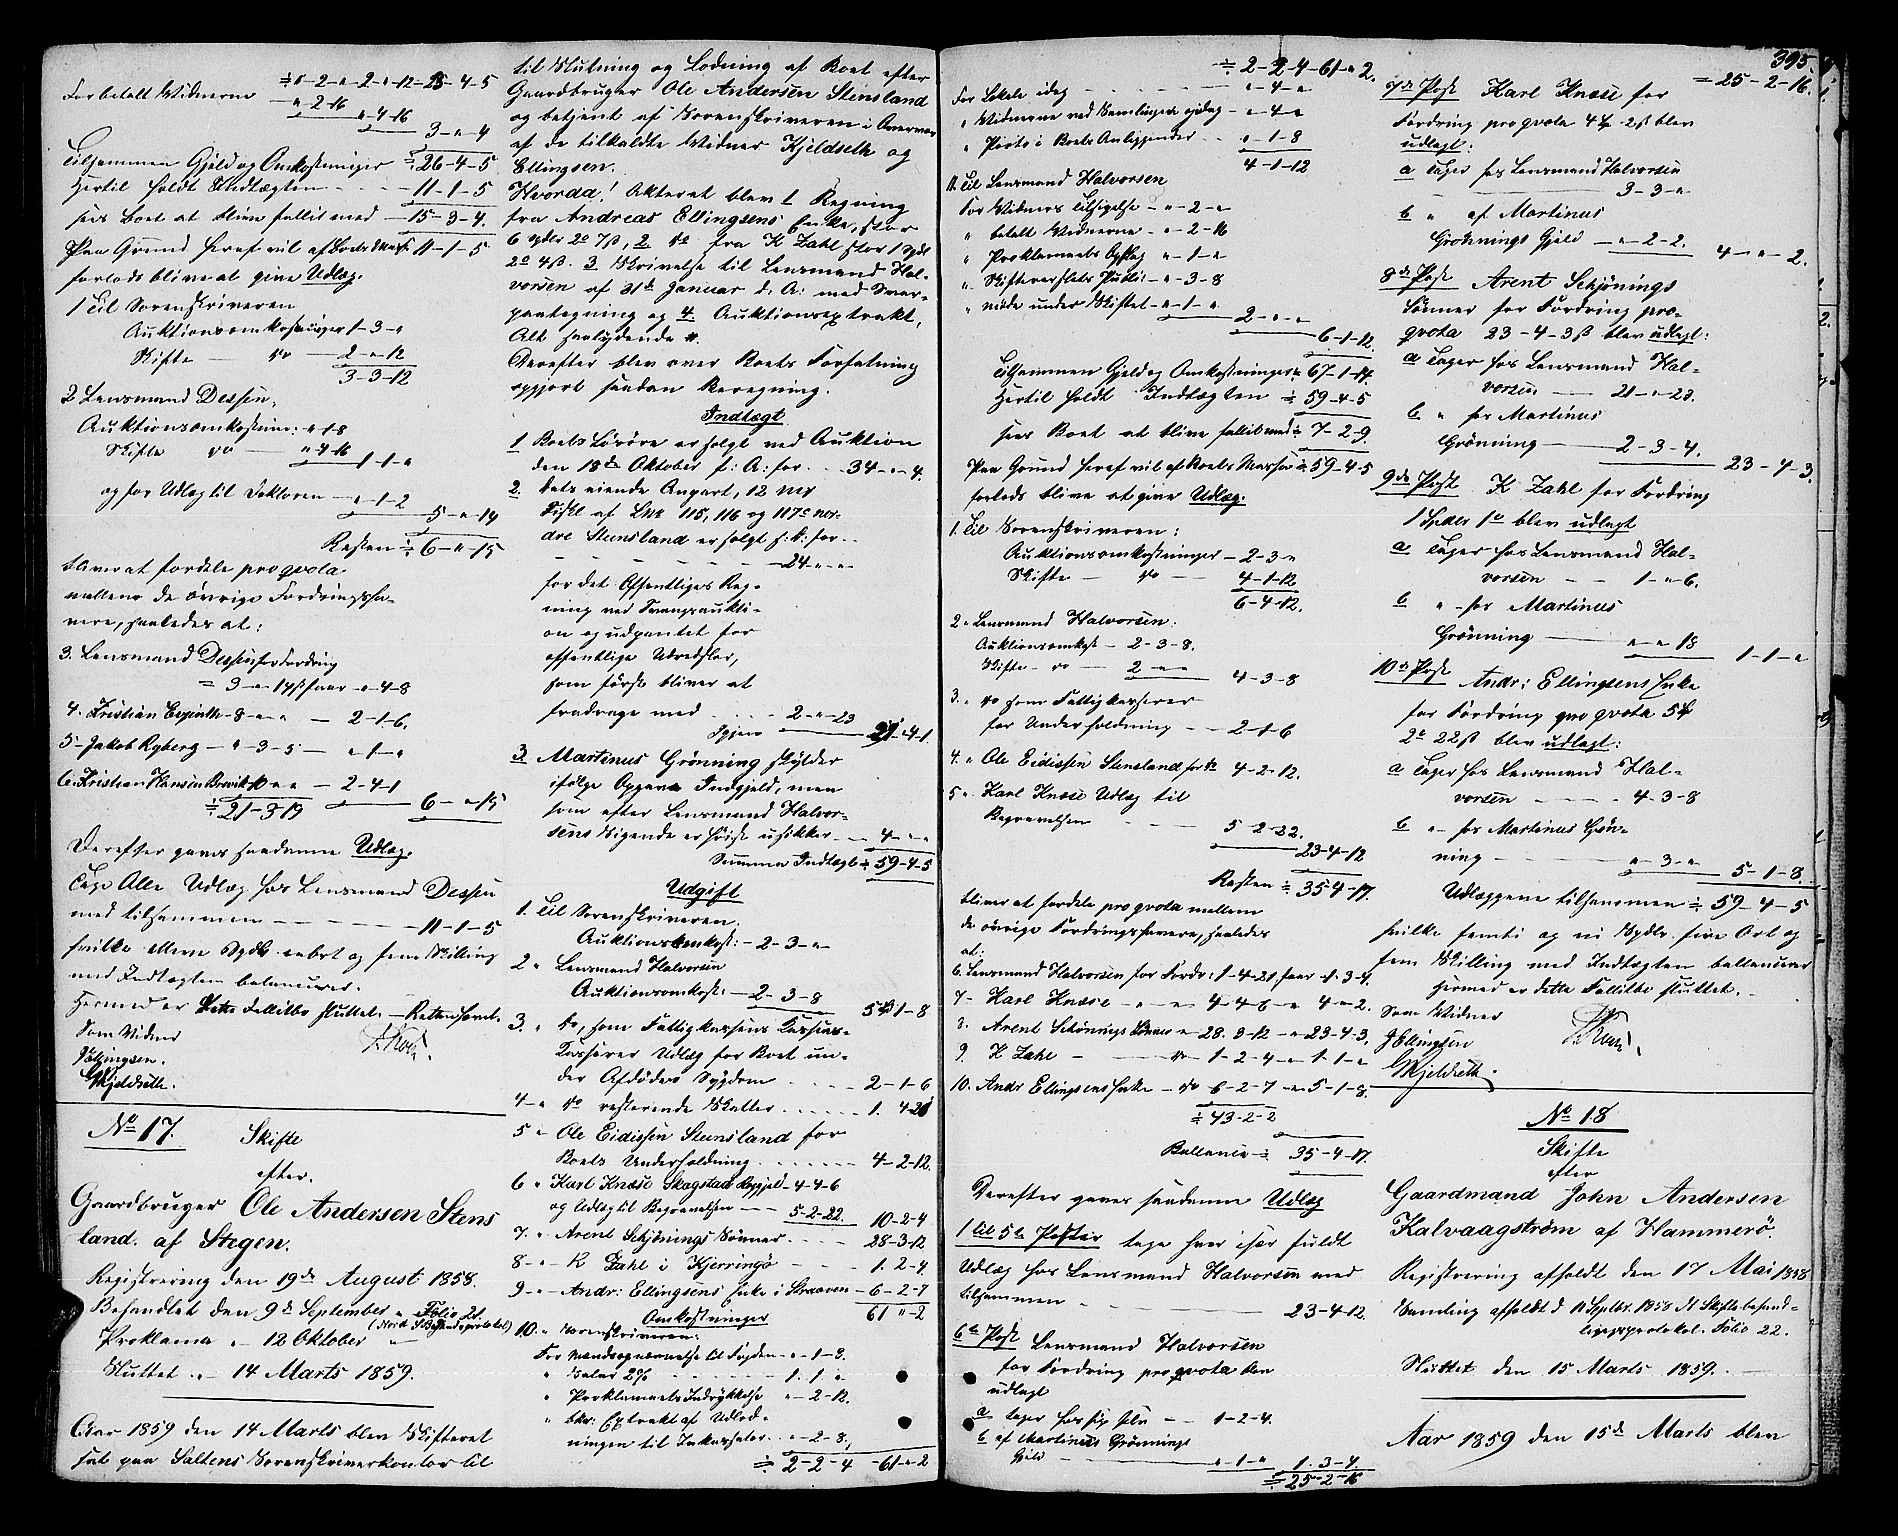 ÷ 8-2-"-2-"-12-23-4-5
For betalt Vidnerne — " 2-16
" 4-16
3-"-4
Tilsammen Gjeld og Omkostninger ÷ 26-4-5
Hertil holdt Indtægten — 11-1-5
sees Boet at blive fallit med — 15-3-4.
Paa Grund heraf vil af Boets Masse 11-1-5
forlods blive at give Udlæg.
1 Til Sorenskriveren
Auktionsomkostninger 1-3-"
Skifte — do — 2-"-12
3-3-12
2 Lensmand Dessen,
Auktionsomkostn: "-1-8
Skifte do — " 4-16
1-1-"
og for Udlæg til Doktoren — "-1-2
5-"-14
Resten ÷ 6-"-15
bliver at fordele pro qvota
mellem de øvrige Fordringsha-
vere, saaledes at:
3. Lensmand Dessen for Fordring
= 3-"-14 ß faar "-4-8
4. Kristian Evjenth - 8-"-" — 2-1-6.
5- Jakob Ryberg — "-3-5 — "-1-"
6. Kristian Hansen Brevik 10 "-" — 2-4-1
÷ 21-3-19 6-"-15
Derefter gaves saadanne Udlæg.
Tage Alle Udlæg hos Lensmand Dessen
med tilsammen — 11-1-5
hvilke elleve Spdlr. en ort og fem Skilling
med Indtægten balancerer.
Hermed er dette Fallitbo sluttet. — Retten hævet.
Som Vidner
J Ellingsen.
GKjeldseth.
No 17. Skifte
efter.
Gaardbruger Ole Andersen Stens
land. af Stegen.
Registrering den 19de August 1858.
Behandlet den 9de September " Folio 21.
Proklama "- 12 Oktober "
Sluttet "- 14 Marts 1859.
Aar 1859 den 14 Marts blev Skifteret
sat paa Saltens Sorenskriverkontor til
til Slutning og Lodning af Boet efter
Gaardbruger Ole Andersen Stensland
og betjent af Sorenskriveren i Overvær
af de tilkaldte Vidner Kjeldseth og
Ellingsen.
Hvorda! Akteret blev 1 Regning
fra Andreas Ellingsens Enke, stor
6 Spdlr 2 o 7 ß, 2. do fra K Zahl stor 1 Spdl
2 o 4 ß. 3 Skrivelse til Lensmand Hal-
vorsen af 31te Januar d: A: med Svar-
paategning og 4. Auktionsextrakt,
Alt saalydende #.
Derefter blev over Boets Forfatning
opgjort saadan Beregning.
Indtægt
1 Boets Løsøre er solgt ved Auktion
den 18de Oktober f: A: for — 34-"-4.
2. Dets eiende Anpart, 12 mk
Fiskl af LNo 115, 116 og 117 c nor-
dre Stensland er solgt f: A: for —
24-"-"
for det Offentliges Reg-
ning ved Tvangsaukti-
on og udpantet for
offentlige Udredsler,
som først bliver at
fradrage med . . . . 2-"-23
Igjen 21-4-1.
3 Martinus Grønning skylder
ifølge Opgave Indgjeld, men
som efter Lensmand Halvor-
sens Sigende er høist usikker — 4-"-"
Summa Indtægt ÷ 59-4-5
Udgift
1. Til Sorenskriveren,
Auktionsomkost: - 2-3-"
2 " Lensmand Halvorsen
Auktionsomkost. — 2-3-8
5-1-8
3. " do, som Fattigkassens Kasse-
Kasserer Udlæg for Boet un-
der Afdødes Sygdom . . . . 2-1-6
4-" do resterende Skatter . . . . . 1. 4-21
5 - Ole Eidissen Stensland for
Boets Underholdning . . . . . . 4-2-12.
6 " Karl Knæse Skagstad Bogjeld - 4-4-6
og Udlæg til Begravelsen — 5-2-22. 10-2-4
7. " Arent Schjønings Sønner . . . . 28-3-12
8-" K Zahl i Kjerringø — 1. 2-4.
9-"- Andr: Ellingsens Enke i Skraaven — 6-2-7
Omkostninger 61 "-2
10. " Sorenskriveren:
For Mandsopnævnelse til Fogden — "-1-8.
" Salær 2% . . . . 1. 1 "
" Proklamaets Indrykkelse "-2-12.
" bkr: Extrakt af Udlod-
ningen til Inkassator . . "-2-8.
÷ 2-2-4 -61-"-2
÷ 2-2-4-61-"2.
For Lokale idag — "-4-"
" Vidnerne ved Samlingen og idag — "-4-"
" Porto i Boets Anliggender — "-1-8
4-1-12
11. Til Lensmand Halvorsen
For Vidners Tilsigelse — "-2-"
" betalt Vidnerne — "-2-16
" Proklamaets Opslag "-1-"
" Skifteverslets Publi: — "-3-8
" møde under Skiftet — "-1-"
2-"-"
6-1-12.
Tilsammen Gjeld og Omkostninger ÷ 67-1-14.
Hertil holdt Indtægten ÷ 59-4-5
sees Boet at blive fallit med ÷ 7-2-9.
Paa Grund heraf vil af Boets Masse ÷ 59-4-5
forlods blive at give Udlæg:
1. Til Sorenskriveren:
Auktionsomkostninger — 2-3-"
Skifte — do — 4-1-12
6-4-12.
2 " Lensmand Halvorsen:
Auktionsomkost — 2-3-8.
Skifte — do — 2 —"—"
4-3-8
3. " do som Fattigkasserer
for Underholdning — 2-1-6
4. " Ole Eidissen Stensland for do 4-2-12.
5 " Karl Knæse Udlæg til
Begravelsen 5-2-22.
23-4-12
Resten ÷ 35-4-17.
bliver at fordele pro qvota mellem
de øvrige Fordringshavere, saaledes
at:
6. Lensmand Halvorsen for Fordr: 1-4-21, faar -1-3-4.
7- Karl Knæse — "-"- 4-4-6 -" 4-"-2.
8. Arent Schønings Sønner " 28. 3-12 -" 23-4-3.
9. K Zahl - — do - 1-2-4 -"- 1-1-"
10. Andr Ellingsens Enke — do 6-2-7 -"- 5-1-8.
÷ 43-2-2
Ballance ÷ 35-4-17.
Derefter gaves saadanne Udlæg
1 til 5te Poster tage hver især fuldt
Udlæg hos Lensmand Halvorsen med
tilsammen — 23-4-12.
6te Post Lensmand Halvorsen
for Fordring pro qvota blev
udlagt
a tager hos sig selv — 1-2-4.
b af Martinus Grønnings
Gjeld — "-1-" 1. 3-4.
÷ 25-2-16
395.
= 25-2-16.
7de Post Karl Knæse for
Fordring pro qvota 4 Spd 2 ß blev
udlagt:
a tager hos Lensmand Halvorsen
3-3-"
b " af Martinus
Grønnings Gjeld — "-2-2. 4-"-2.
8de Post Arent Schjønings
Sønner for Fordring pro-
qvota 23-4-3 ß blev udlagt:
a tager hos Lensmand Hal-
vorsen — 21-"-23.
b " hos Martinus
Grønning — 2-3-4.
23-4-3.
9de Post K Zahl for Fordring
1 Spdlr 1 o blev udlagt
a tager hos Lensmand Hal-
vorsen — 1-"-6.
b " - hos Martinus
Grønning — "-"18
1-1-"
10de Post Andr: Ellingsens Enke
for Fordring pro qvota 5 Spd
2 o 22 ß blev udlagt:
a tager hos Lensmand Hal-
vorsen — 4-3-8
b "- hos Martinus Grøn-
ning — "-3-" 5-1-8.
Udlæggene tilsammen ÷ 59-4-5
hvilke femti og ni Spdlr. fire Ort og
fem Skilling med Indtægten ballancerer
hermed er dette Fallitbo sluttet. —
Som Vidner
J Ellingsen
GKjeldseth.
No 18
Skifte
efter
Gaardmand John Andersen
Kalvaagstrøm af Hammerø.
Registrering afholdt den 17 Mai 1858
Samling afholdt d 11 Septbr. 1858 st Skiftebehand-
lingsprotokol. Folio 22.
Sluttet den 15 Marts 1859. —
Aar 1859 den 15de Marts blev